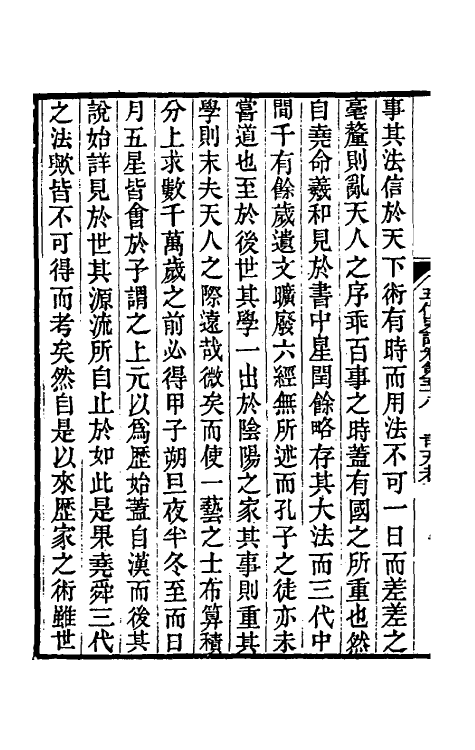 事其法信於天下術有時而用法不可一日而差差之
毫釐則亂天人之序乖百事之時蓋有國之所重也然
自堯命羲和見於書中星閏餘略存其大法而三代中
間千有餘歲遺文曠廢六經無所述而孔子之徒亦未
嘗道也至於後世其學一出於陰陽之家其事則重其
學則末夫天人之際遠哉微矣而使一藝之士布算積
分上求數千萬歲之前必得甲子朔旦夜半冬至而日
月五星皆會於子謂之上元以爲歴始蓋自漢而後其
說始詳見於世其源流所自止於如此是果堯舜三代
之法歟皆不可得而考矣然自是以來歴家之術雖世